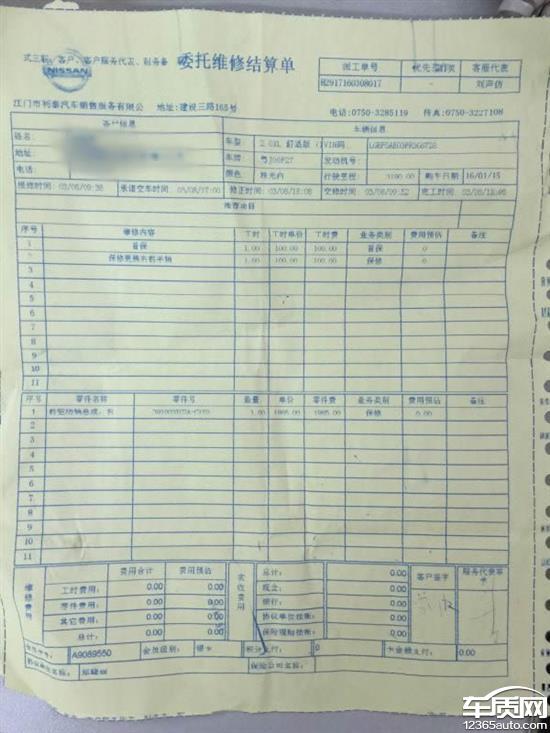 式三联：客户、客户服务代表、财务备
NISSAN
委托维修结算单
派工单号 优先 客服代表
H2917160308017 - 刘声仿
江门市利泰汽车销售服务有限公 地址:建设三路165号 电话:0750-3285119 传真:0750-3227108
客户信息 车辆信息
姓名: 车型 2.0XL 舒适版 (VIN码
地址: 车牌 发动机号:
电话: 颜色 珠光白 行驶里程 购车日期 16/01/15
维修时间: 03/08/09:38 承诺交车时间: 03/08/17:00 修正时间: 03/08/18:08 交修时间: 03/08/09:52 完工时间: 03/08/18:06
推荐项目
序号 维修内容 工时 工时单价 工时费 业务类别 费用预估 备注
1 首保 1.00 100.00 100.00 首保 0
2 保修更换右前半轴 1.00 100.00 100.00 保修 0
3
4
5
6
7
8
9
10
11
序号 零件名称 零件号 数量 单价 零件费 业务类别 费用预估 备注
1 前驱动轴总成，右 1.00 1985.00 1985.00 保修 0.00
2
3
4
5
6
7
8
9
10
11
维修费用 费用合计 费用预估 实收费用 总计: 0.00 客户签字 服务代表签字
工时费用: 0.00 0.00 现金: 0.00
零件费用: 0.00 0.00 银行: 0.00
其它费用: 0.00 0.00 协议单位挂账: 0.00
总计: 0.00 0.00 保险理赔挂账: 0.00
会员卡号: A9089550 会员级别: 银卡 积分支付: 0 卡金额支付: 0.00
协议单位名称: 保险公司名称:
车质网
12365auto.com